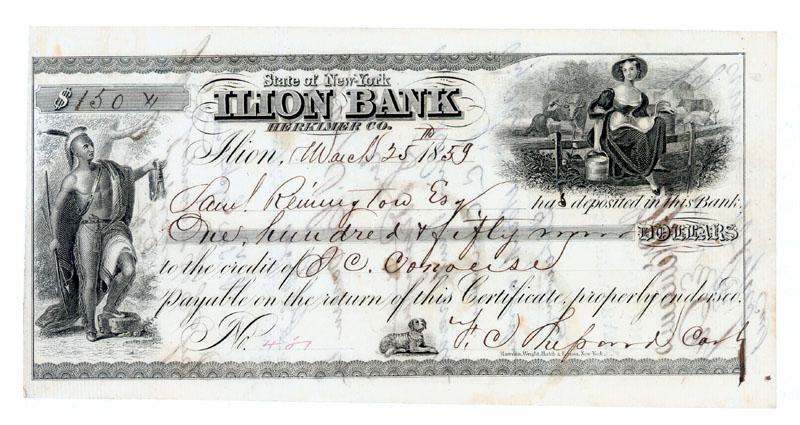 State of New-York
$150
ILION BANK
HERKIMER CO.
Ilion, March 25th 1859
Saml. Remington Esq has deposited in this Bank,
One hundred & fifty DOLLARS
to the credit of E C. Converse
Payable on the return of this Certificate, properly endorsed.
No.
Rawdon, Wright, Hatch & Edson, New-York.